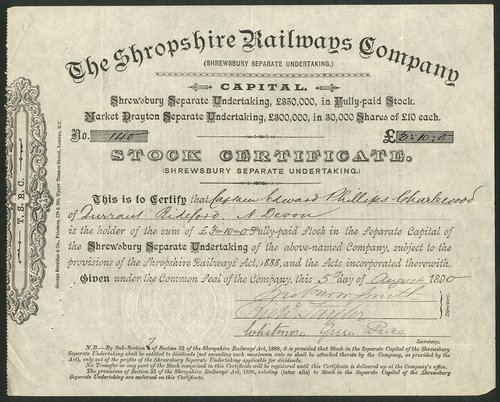 The Shropshire Railways Company
(SHREWSBURY SEPARATE UNDERTAKING.)
CAPITAL.
Shrewsbury Separate Undertaking, £350,000, in Fully-paid Stock.
Market Drayton Separate Undertaking, £300,000, in 30,000 Shares of £10 each.
No. 140 £3:10:0
STOCK CERTIFICATE.
(SHREWSBURY SEPARATE UNDERTAKING.)
This is to Certify that Captain Edward Phillips
of Durrant Bideford, N. Devon
is the holder of the sum of £3=10=0 Fully-paid Stock in the Separate Capital of
the Shrewsbury Separate Undertaking of the above-named Company, subject to the
provisions of the Shropshire Railways Act, 1888, and the Acts incorporated therewith.
Given under the Common Seal of the Company, this 5th day of August 1890
Directors.
Secretary.
N.B.—By Sub-Section 7 of Section 32 of the Shropshire Railways Act, 1888, it is provided that Stock in the Separate Capital of the Shrewsbury
Separate Undertaking shall be entitled to dividends (not exceeding such maximum rate as shall be attached thereto by the Company, as provided by the
Act), only out of the profits of the Shrewsbury Separate Undertaking applicable for dividends.
No Transfer or any part of the Stock comprised in this Certificate will be registered until this Certificate is delivered up at the Company's office.
The provisions of Section 32 of the Shropshire Railways Act, 1888, relating (inter alia) to Stock in the Separate Capital of the Shrewsbury
Separate Undertaking are endorsed on this Certificate.
T. S. R. C.